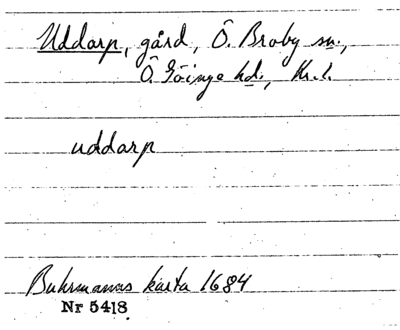 Uddarp, gård, Ö. Broby sn.,
Ö. Göinge hd., Kr. l.
uddarp
Buhrmanns karta 1684
Nr 5418